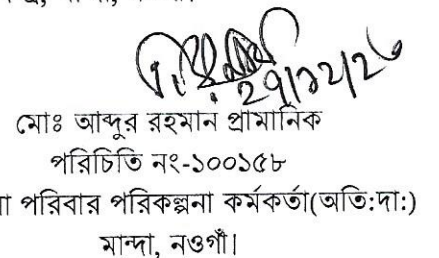 মোঃ আব্দুর রহমান প্রামানিক
পরিচিতি নং-১০০১৫৮
পরিবার পরিকল্পনা কর্মকর্তা(অতি:দা:)
মান্দা, নওগাঁ।